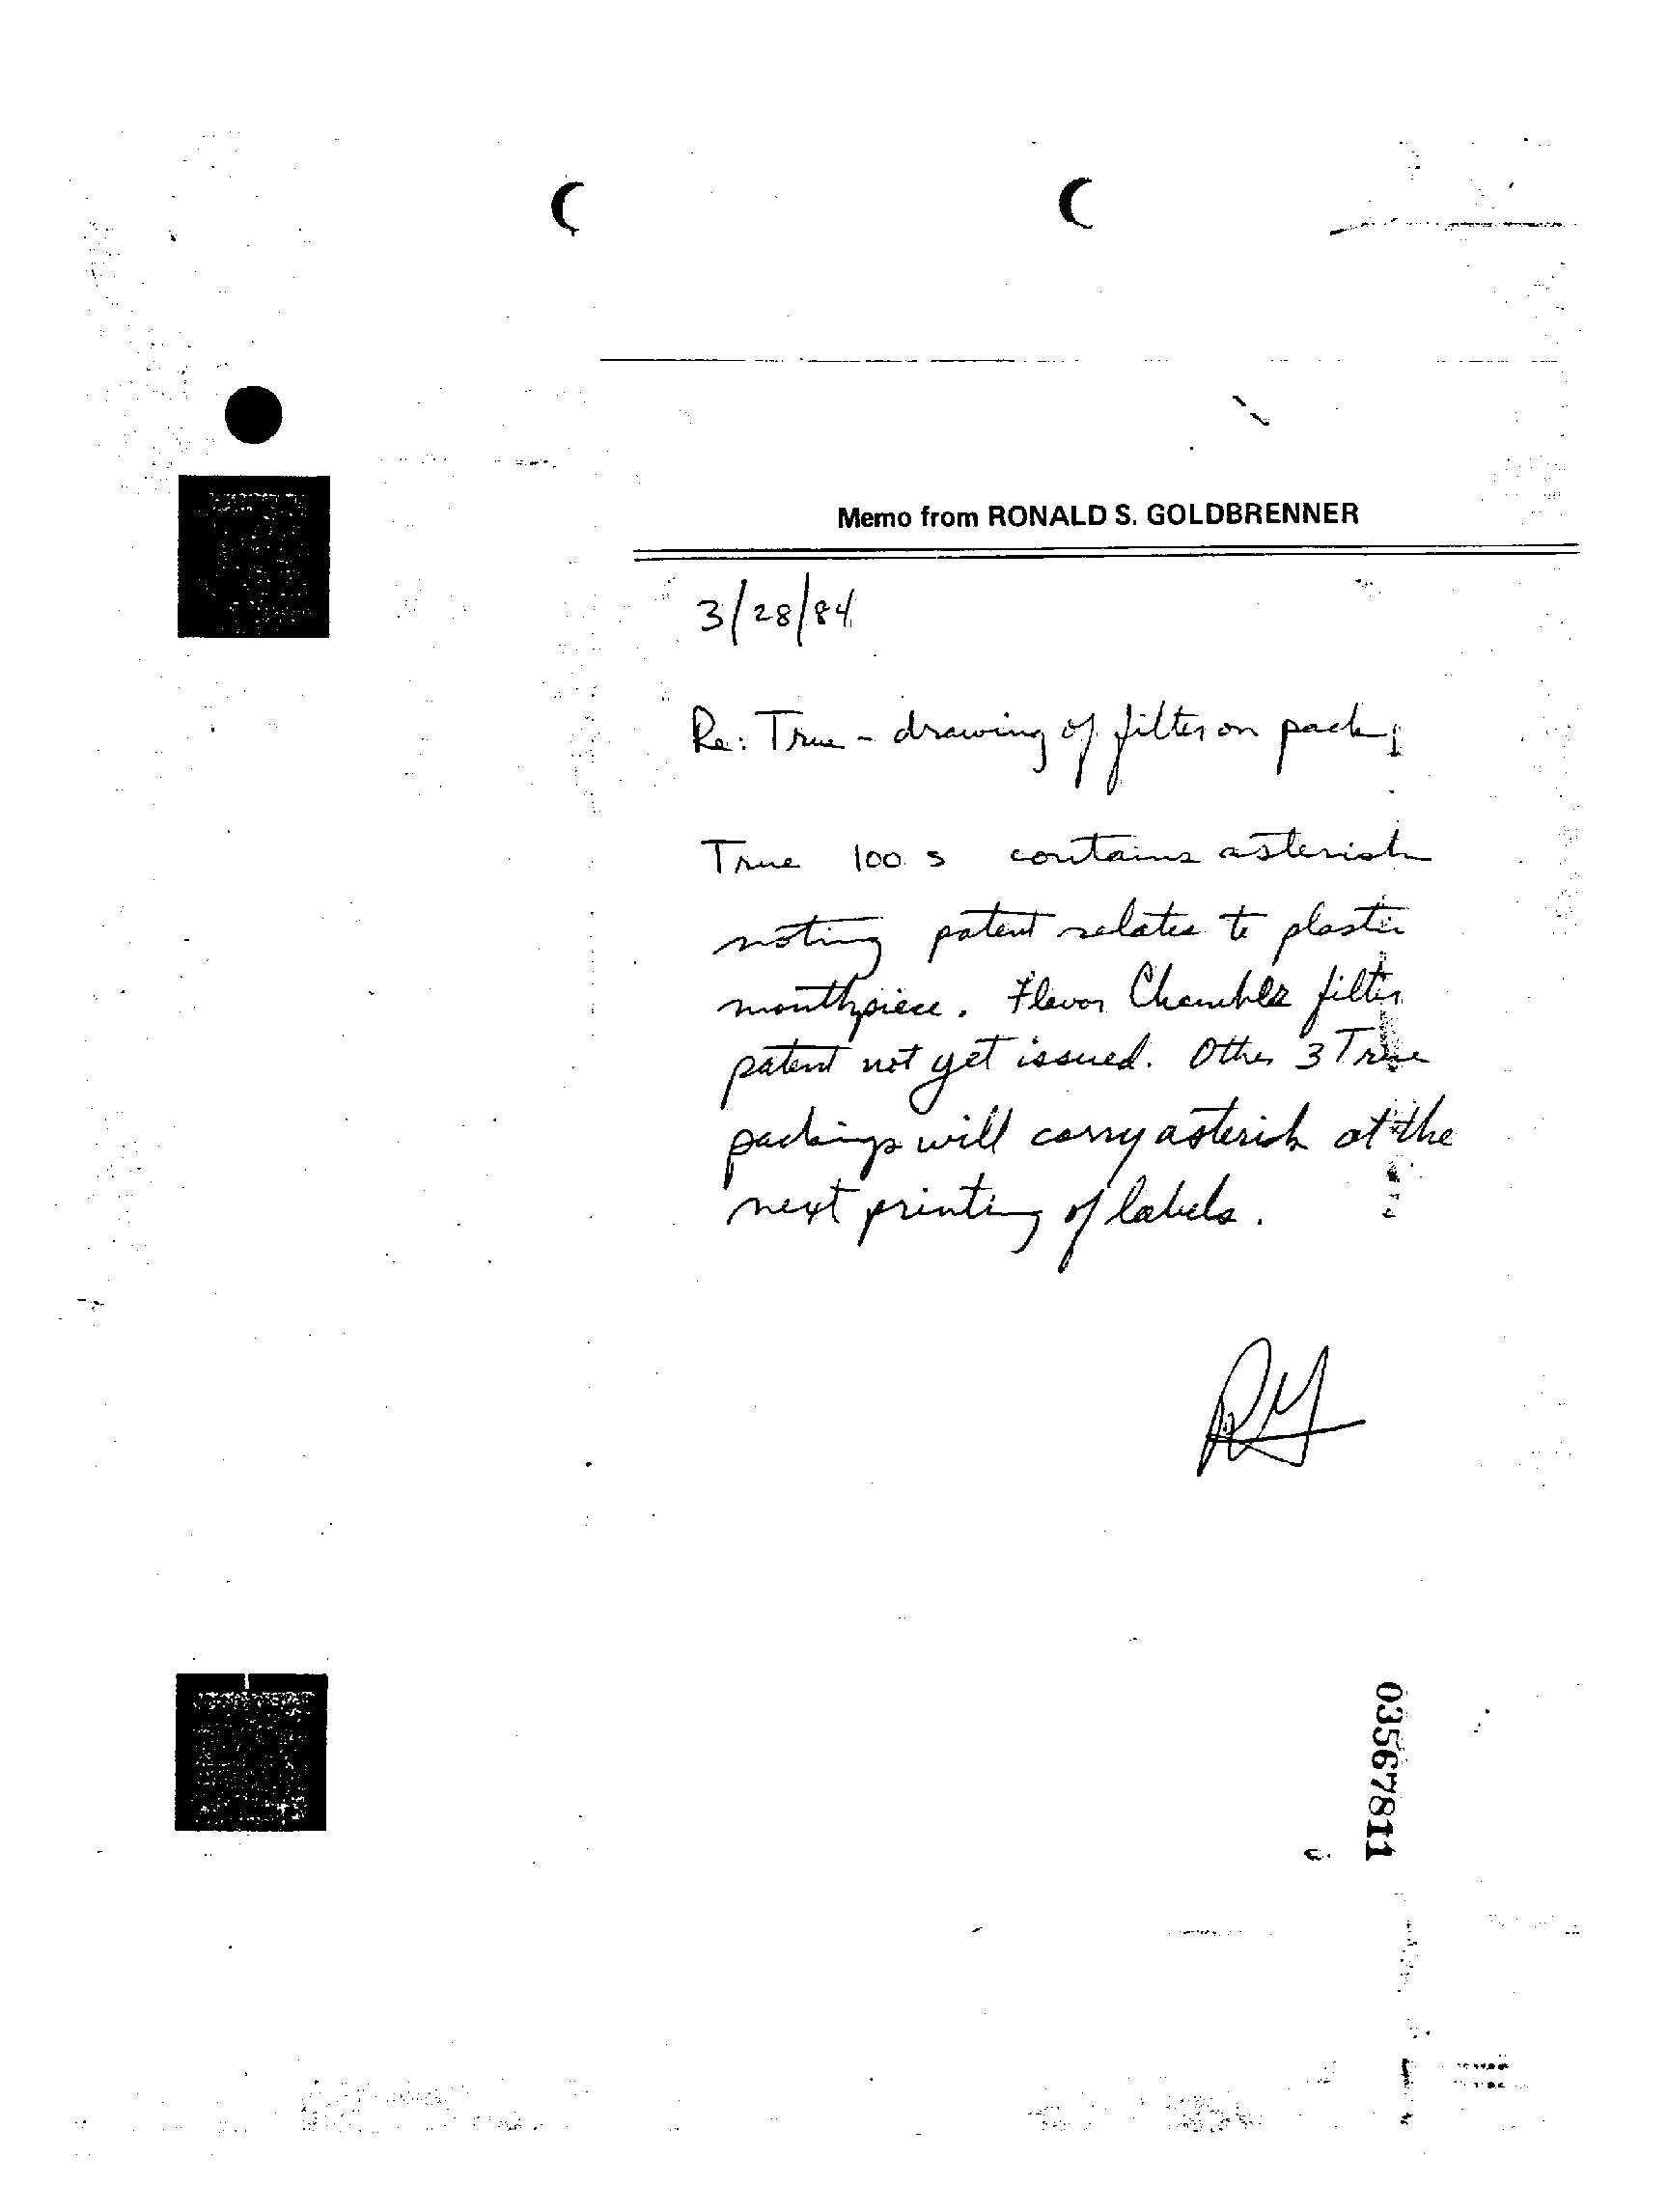 Memo from RONALD S. GOLDBRENNER
3/28/84
Re: True - drawing of filter on pack
True 100 s contains asterisk
noting patent relates to plastic
mouthpiece. Flavor Chamber filter
patent not yet issued. Other 3 True
packings will carry asterisk at the
next printing of labels.
RG
03567811